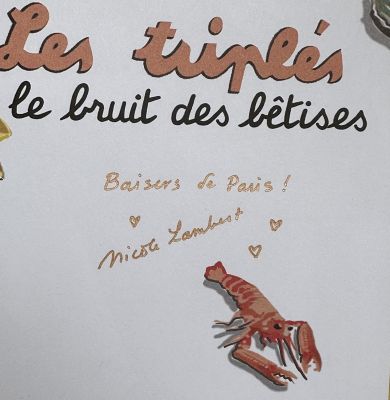 Les triplés
le bruit des bêtises
Baisers de Paris !
Nicole Lambert